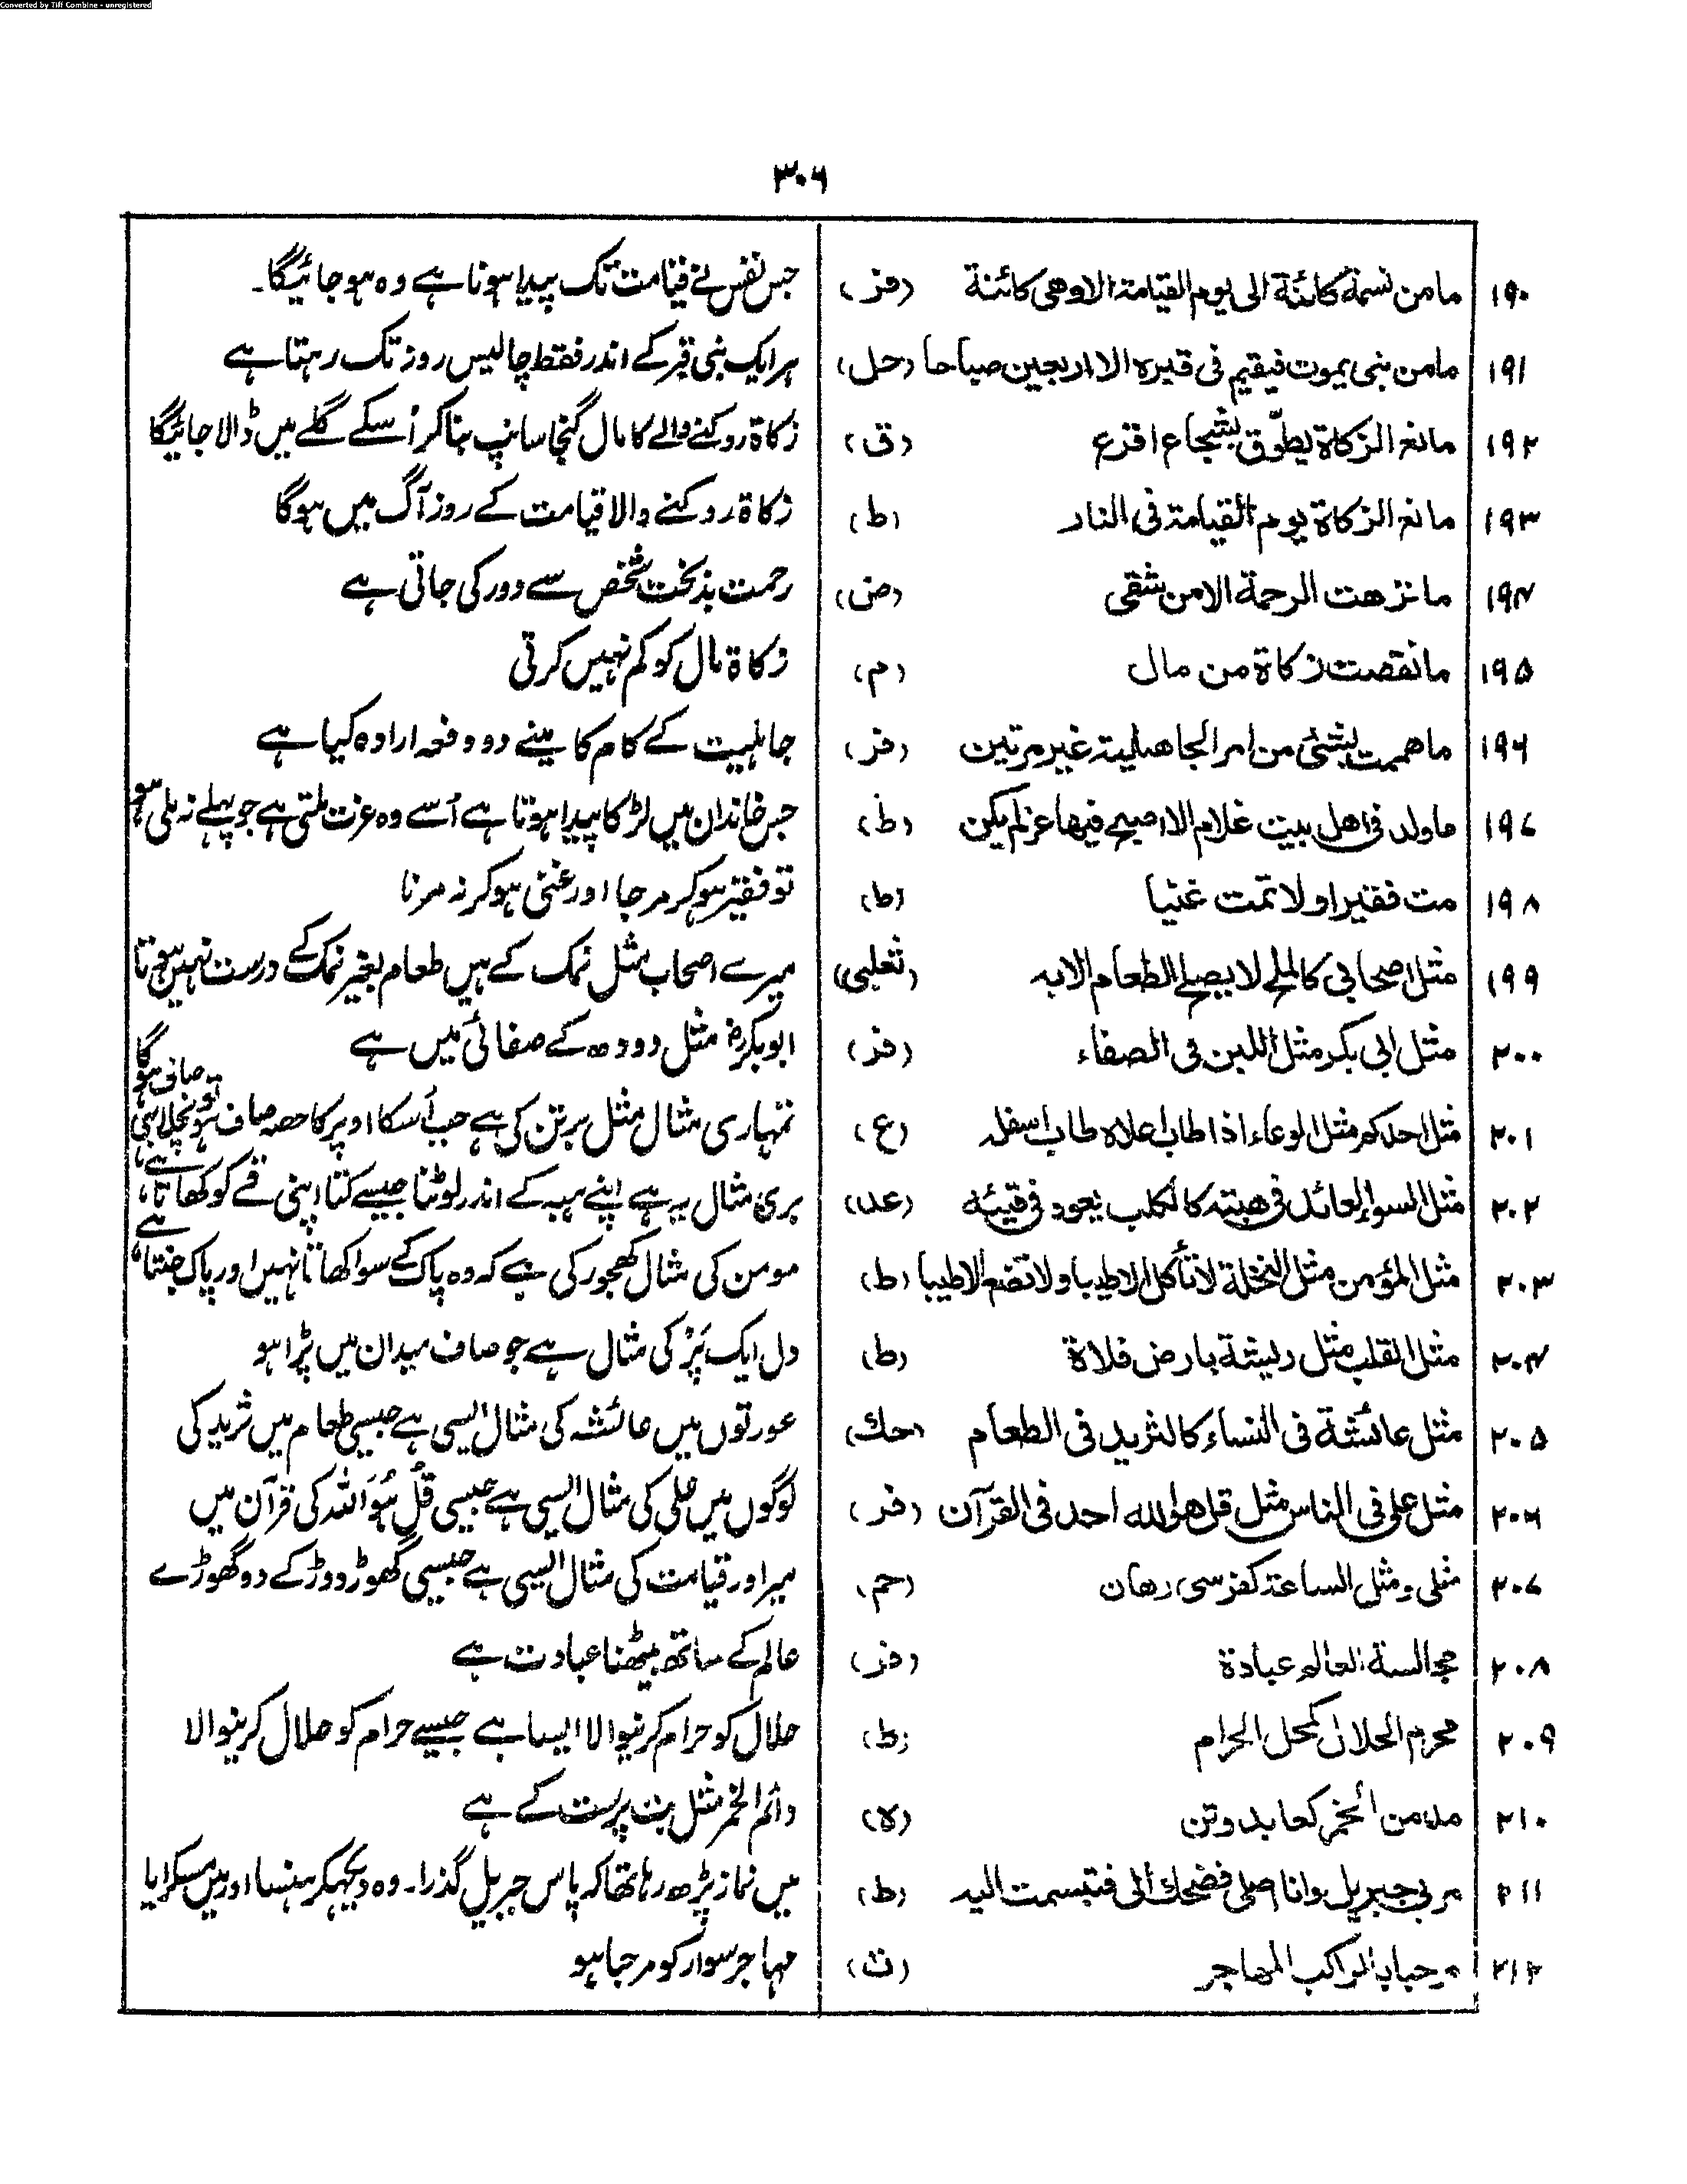 Converted by Tiff Combine - unregistered
۳۰۶
۱۹۰ مامن نسمة کائنة الی یوم القیامة الا وهی کائنة (فر) جس نفس نے قیامت تک پیدا ہونا ہے وہ ہو جائیگا۔
۱۹۱ مامن نبی یموت فیقیم فی قبره الا اربعین صباحا (حل) ہر ایک نبی قبر کے اندر فقط چالیس روز تک رہتا ہے
۱۹۲ مانع الزکاة یطوّق بشجاع اقرع (ق) زکاة روکنے والے کا مال گنجا سانپ بنا کر اُسکے گلے میں ڈالا جائیگا
۱۹۳ مانع الزکاة یوم القیامة فی النار (ط) زکاة روکنے والا قیامت کے روز آگ میں ہوگا
۱۹۴ مانزهت الرحمة الا من شقی (ض) رحمت بدبخت شخص سے دور کی جاتی ہے
۱۹۵ مانقصت زکاة من مال (م) زکاة مال کو کم نہیں کرتی
۱۹۶ ماهممت بشئ من امر الجاهلیة غیر مرتین (فر) جاہلیت کے کام کا مینے دو دفعہ ارادہ کیا ہے
۱۹۷ ماولد فی اهل بیت غلام الا اصبح فیها عز لم یکن (ط) جس خاندان میں لڑکا پیدا ہوتا ہے اُسے وہ عزت ملتی ہے جو پہلے نہ ملی ہو
۱۹۸ مت فقیرا ولا تمت غنیا (ط) تو فقیر ہوکر مرجا اور غنی ہوکر نہ مرنا
۱۹۹ مثل اصحابی کالملح لا یصلح الطعام الا به (ثعلبی) میرے اصحاب مثل نمک کے ہیں طعام بغیر نمک کے درست نہیں ہوتا
۲۰۰ مثل ابی بکر مثل اللبن فی الصفاء (فر) ابوبکرؓ مثل دودھ کے صفائی میں ہے
۲۰۱ مثل احدکم مثل الوعاء اذا طاب اعلاه طاب اسفله (ع) تمہاری مثال مثل برتن کی ہے جب اُسکا اوپر کا حصہ صاف ہو تو نچلا بھی صاف ہوگا
۲۰۲ مثل السوء العائد فی هبته کالکلب یعود فی قیئه (عد) بری مثال یہ ہے اپنے ہبہ کے اندر لوٹنا جیسے کتا اپنی قے کو کھاتا ہے
۲۰۳ مثل المؤمن مثل النخلة لا تأکل الا طیبا ولا تضع الا طیبا (ط) مومن کی مثال کھجور کی ہے کہ وہ پاک کے سوا کھاتا نہیں اور پاک جنتا ہے
۲۰۴ مثل القلب مثل ریشة بارض فلاة (ط) دل ایک پَر کی مثال ہے جو صاف میدان میں پڑا ہو
۲۰۵ مثل عائشة فی النساء کالثرید فی الطعام (حك) عورتوں میں عائشہ کی مثال ایسی ہے جیسی طعام میں ثرید کی
۲۰۶ مثل علی فی الناس مثل قل هو الله احد فی القرآن (فر) لوگوں میں علی کی مثال ایسی ہے جیسی قُل ہُوَ اللّٰہ کی قرآن میں
۲۰۷ مثلی ومثل الساعة کفرسی رهان (حم) میرا ور قیامت کی مثال ایسی ہے جیسی گھوڑ دوڑ کے دو گھوڑے
۲۰۸ مجالسة العالم عبادة (فر) عالم کے ساتھ بیٹھنا عبادت ہے
۲۰۹ محرم الحلال کمحل الحرام (ط) حلال کو حرام کرنیوالا ایسا ہے جیسے حرام کو حلال کرنیوالا
۲۱۰ مدمن الخمر کعابد وثن (ہ) دائم الخمر مثل بت پرست کے ہے
۲۱۱ مر بی جبریل وانا اصلی فضحك الی فتبسمت الیه (ط) میں نماز پڑھ رہا تھا کہ پاس جبریل گذرا۔ وہ دیکھکر ہنسا اور میں مسکرایا
۲۱۲ مرحبا بالراکب المهاجر (ت) مہاجر سوار کو مرحبا ہو